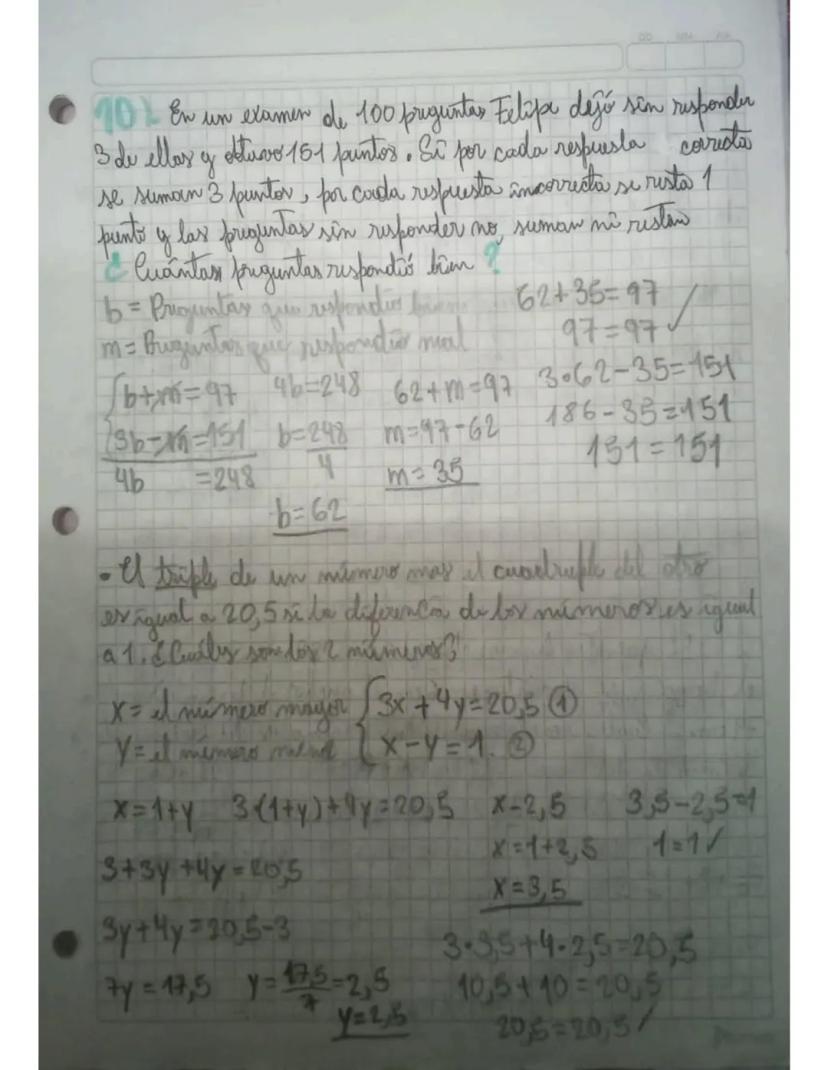 10) En un examen de 100 preguntas Felipe dejó sin responder
3 de ellas y obtuvo 151 puntos. Si por cada respuesta correcta
se suman 3 puntos, por cada respuesta incorrecta se resta 1
punto y las preguntas sin responder no suman ni restan
¿Cuántas preguntas respondió bien?
b = Preguntas que respondio bien
m = Preguntas que respondio mal
b+m=97
3b-m=151
4b =248
4b=248
b=248
4
b=62
62+m=97
m=97-62
m=35
62+35=97
97=97 ✓
3•62-35=151
186-35=151
151=151
• El triple de un número mas el cuadruple del otro
es igual a 20,5 si la diferenca de los números es igual
a 1. ¿Cuáles son los 2 números?
x= el número mayor
y= el número menor
3x+4y=20,5 ①
x-y=1. ②
x=1+y 3•(1+y)+4y=20,5
3+3y+4y=20,5
3y+4y=20,5-3
7y=17,5 y=17,5/7=2,5
y=2,5
x-2,5
x=1+2,5
x=3,5
3,5-2,5=1
1=1 ✓
3•3,5+4•2,5=20,5
10,5+10=20,5
20,5=20,5 ✓